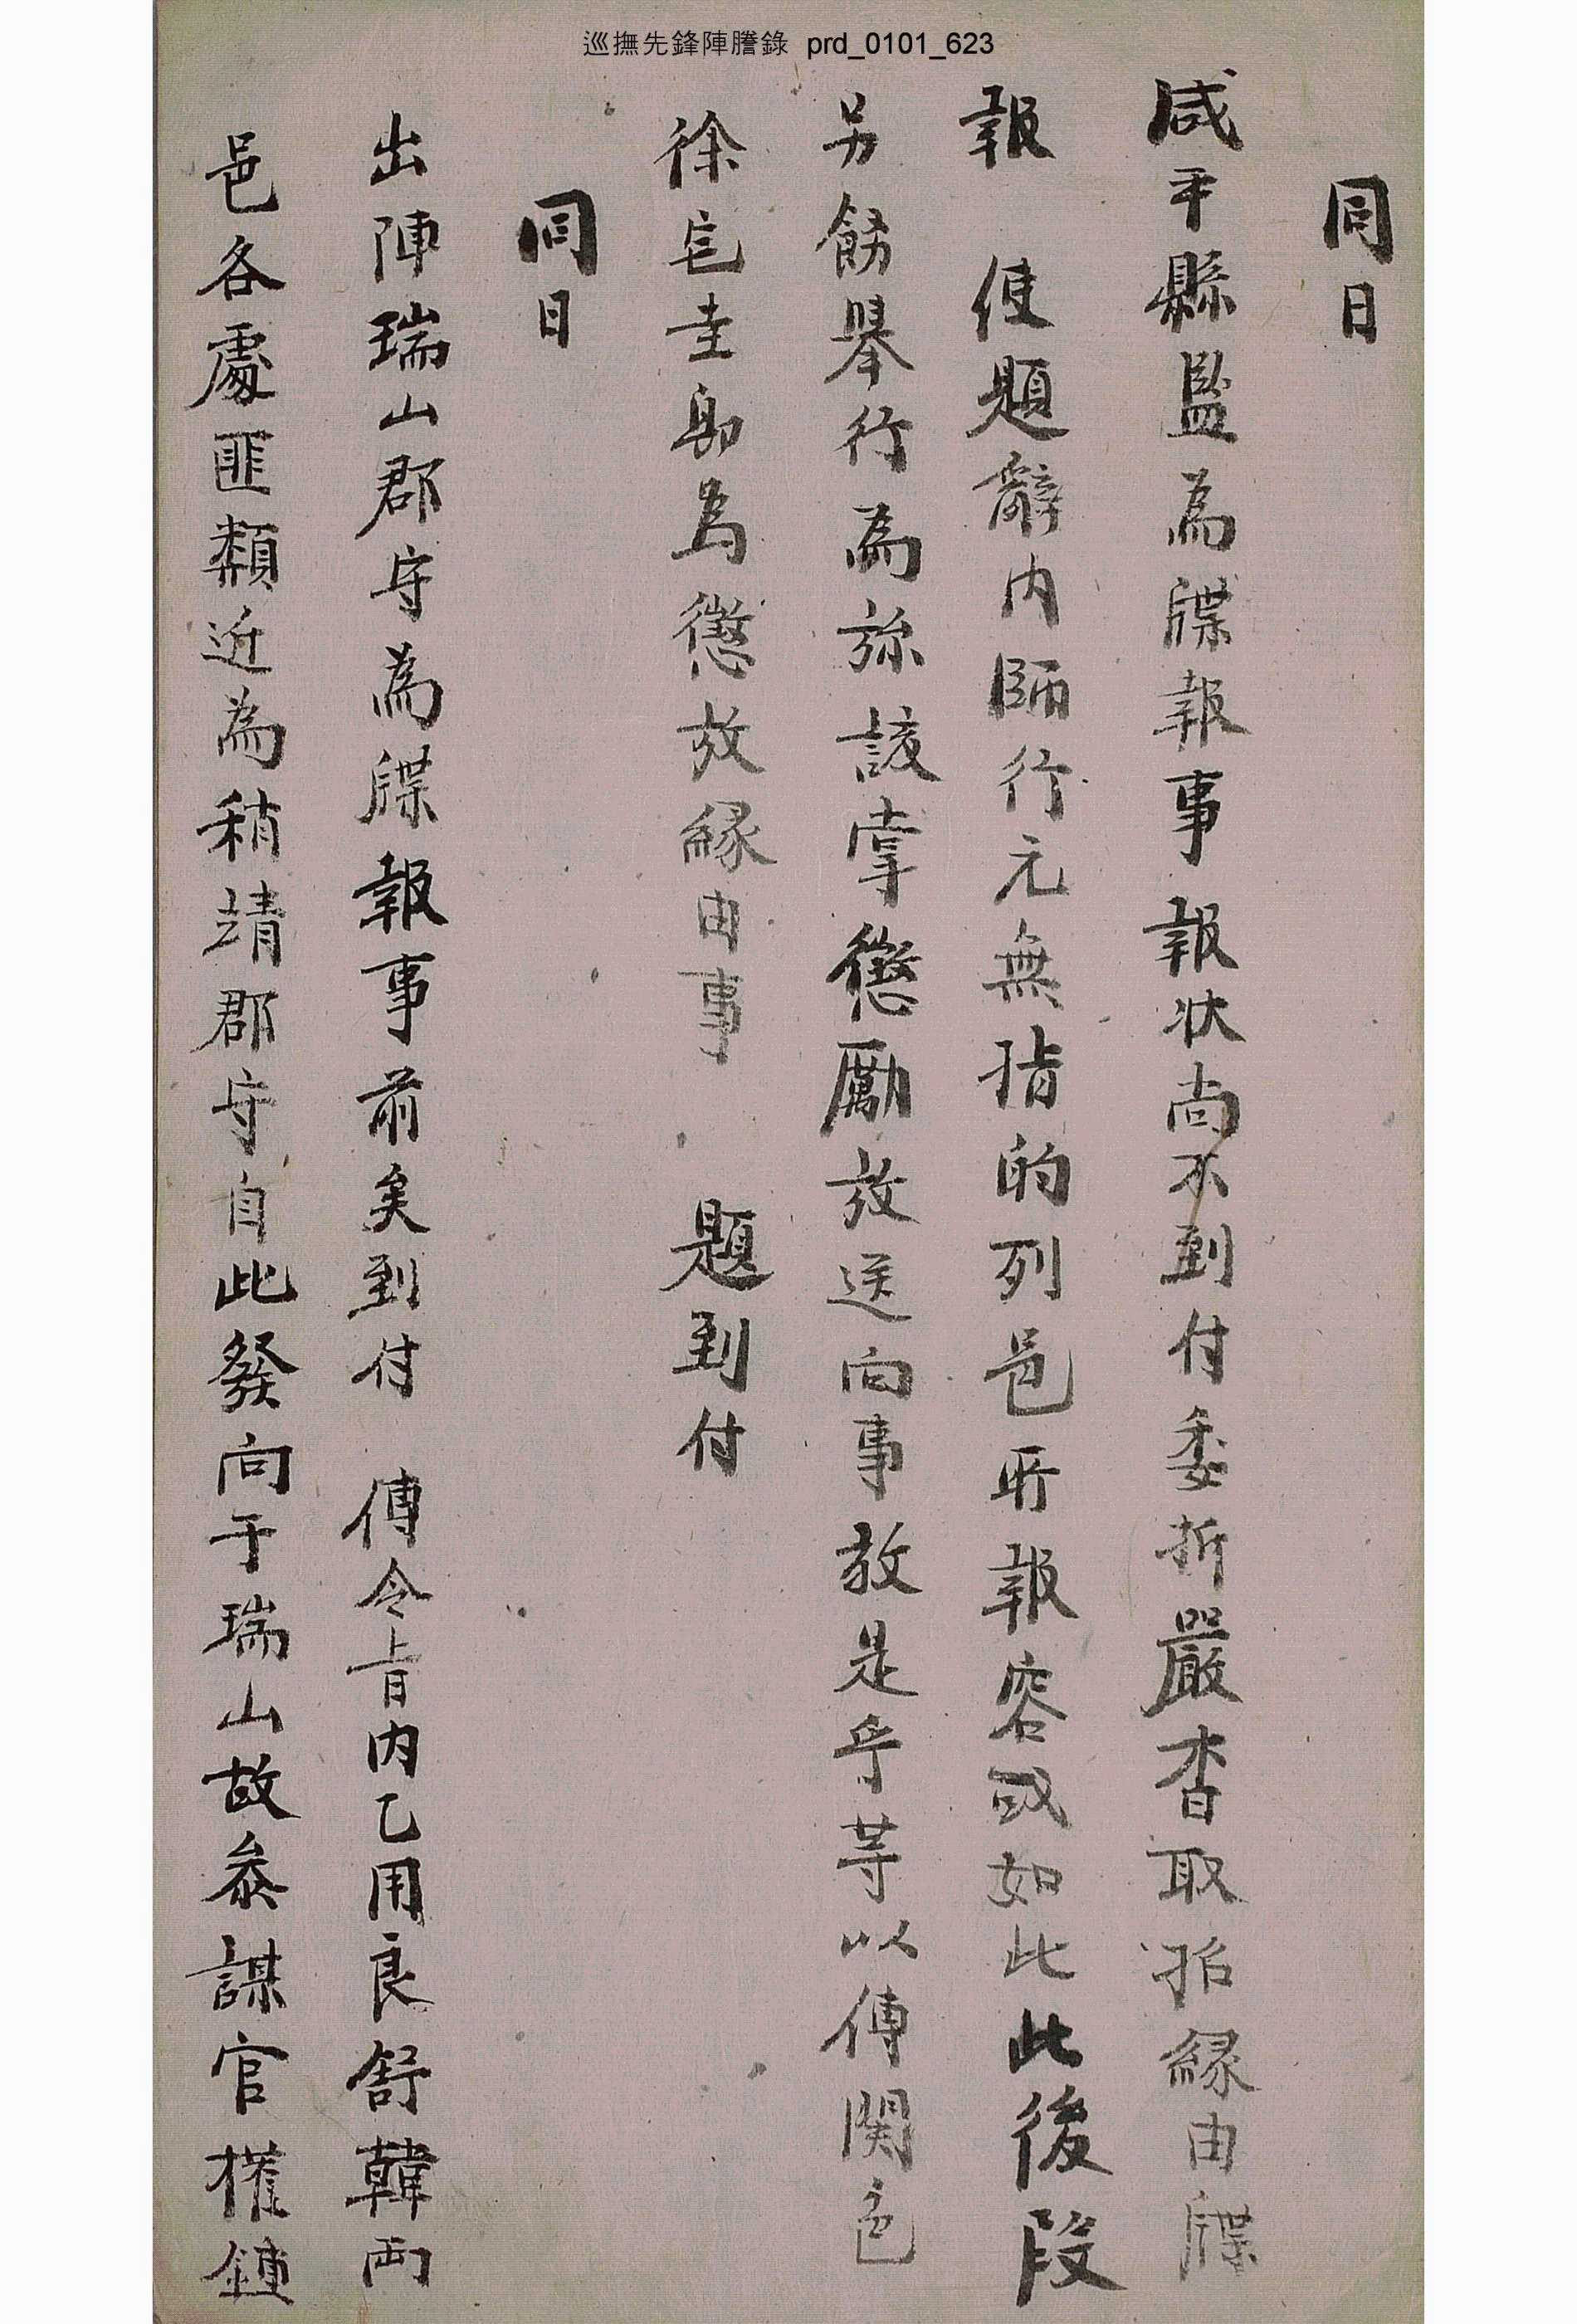 巡撫先鋒陣謄錄 prd_0101_623
同日
咸平縣監為牒報事報状尚不到付委折嚴查取招緣由牒
報 使題辭內師行元無指的列邑所報容或如此此後段
另飭擧行為㫆該掌懲勵放送向事敎是乎等以傳関色
徐宅圭卽為懲放緣由事 題到付
同日
出陣瑞山郡守為牒報事前矣到付 傳令旨內乙用良舒韓兩
邑各處匪類近為稍靖郡守自此發向于瑞山故叅謀官權鍾